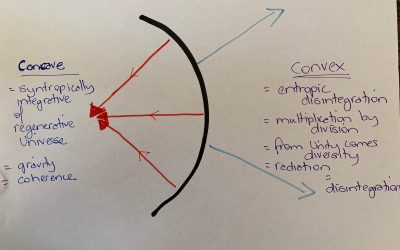 Concave
= syntropically
integrative
of
regenerative
Universe
= gravity
= coherence
Convex
= entropic
disintegration
= multiplication by
division
= from Unity comes
diversity
= radiation
=
disintegration